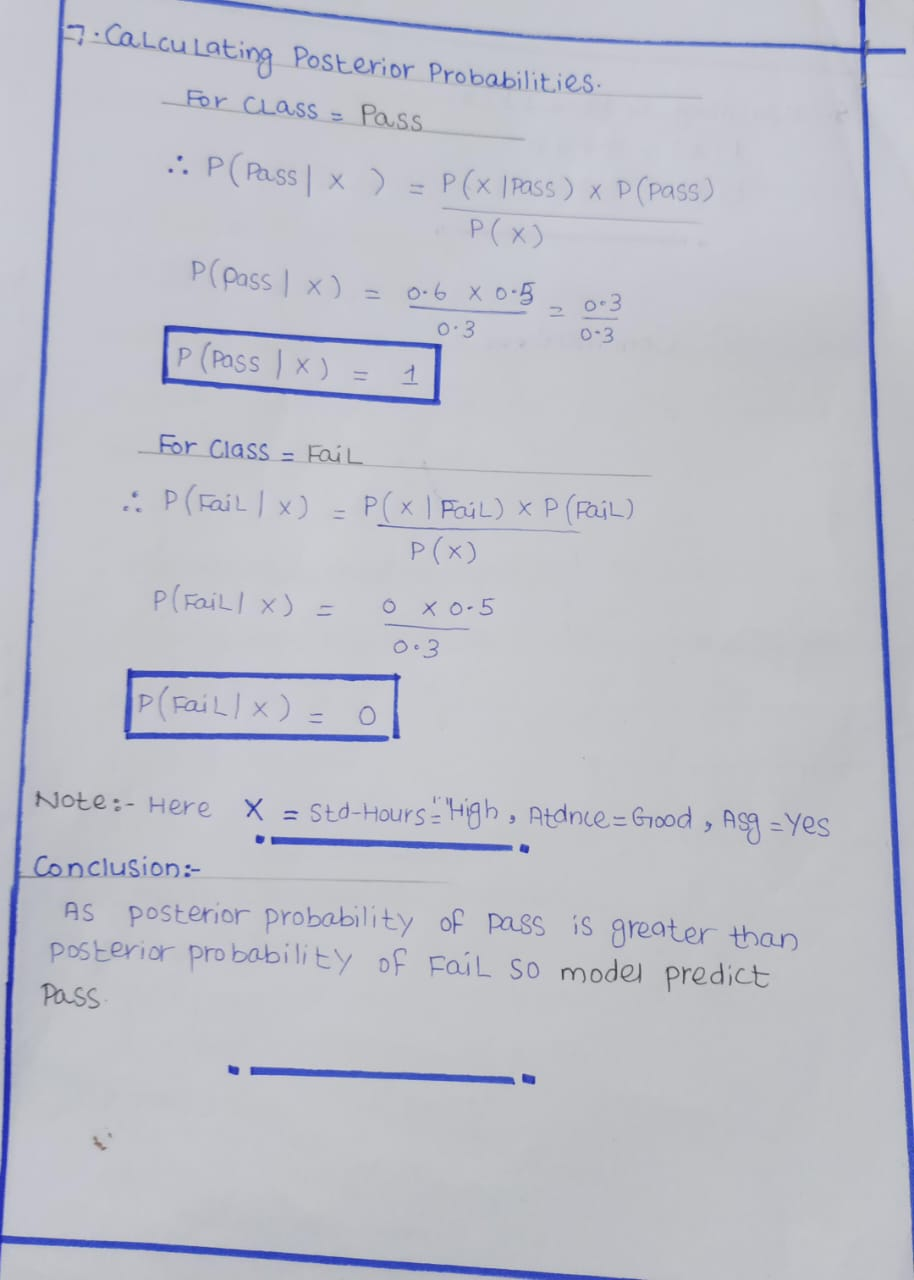 7. Calculating Posterior Probabilities.
For Class = Pass
∴ P(Pass | x ) = P(x | Pass) x P(Pass)
P(x)
P(pass | x) = 0.6 x 0.5 = 0.3
0.3 0.3
P(Pass | x) = 1
For Class = Fail
∴ P(Fail | x) = P(x | Fail) x P(Fail)
P(x)
P(Fail | x) = 0 x 0.5
0.3
P(Fail | x) = 0
Note:- Here X = Std-Hours="High, Atdnce=Good, Asg=Yes
Conclusion:-
As posterior probability of pass is greater than
posterior probability of Fail so model predict
Pass.